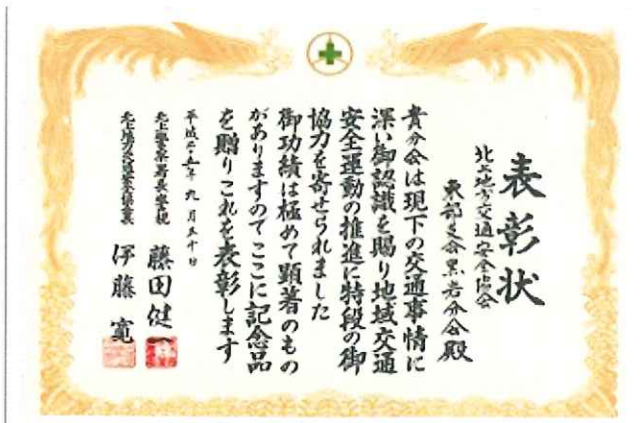 表彰状
北上地方交通安全協会
東部支会黒岩分会殿
貴分会は現下の交通事情に
深い御認識を賜り地域交通
安全運動の推進に特段の御
協力を寄せられました
御功績は極めて顕著のもの
がありますのでここに記念品
を贈りこれを表彰します
平成二十五年九月三十日
北上警察署長警視 藤田健一
北上地方交通安全協会長 伊藤寛